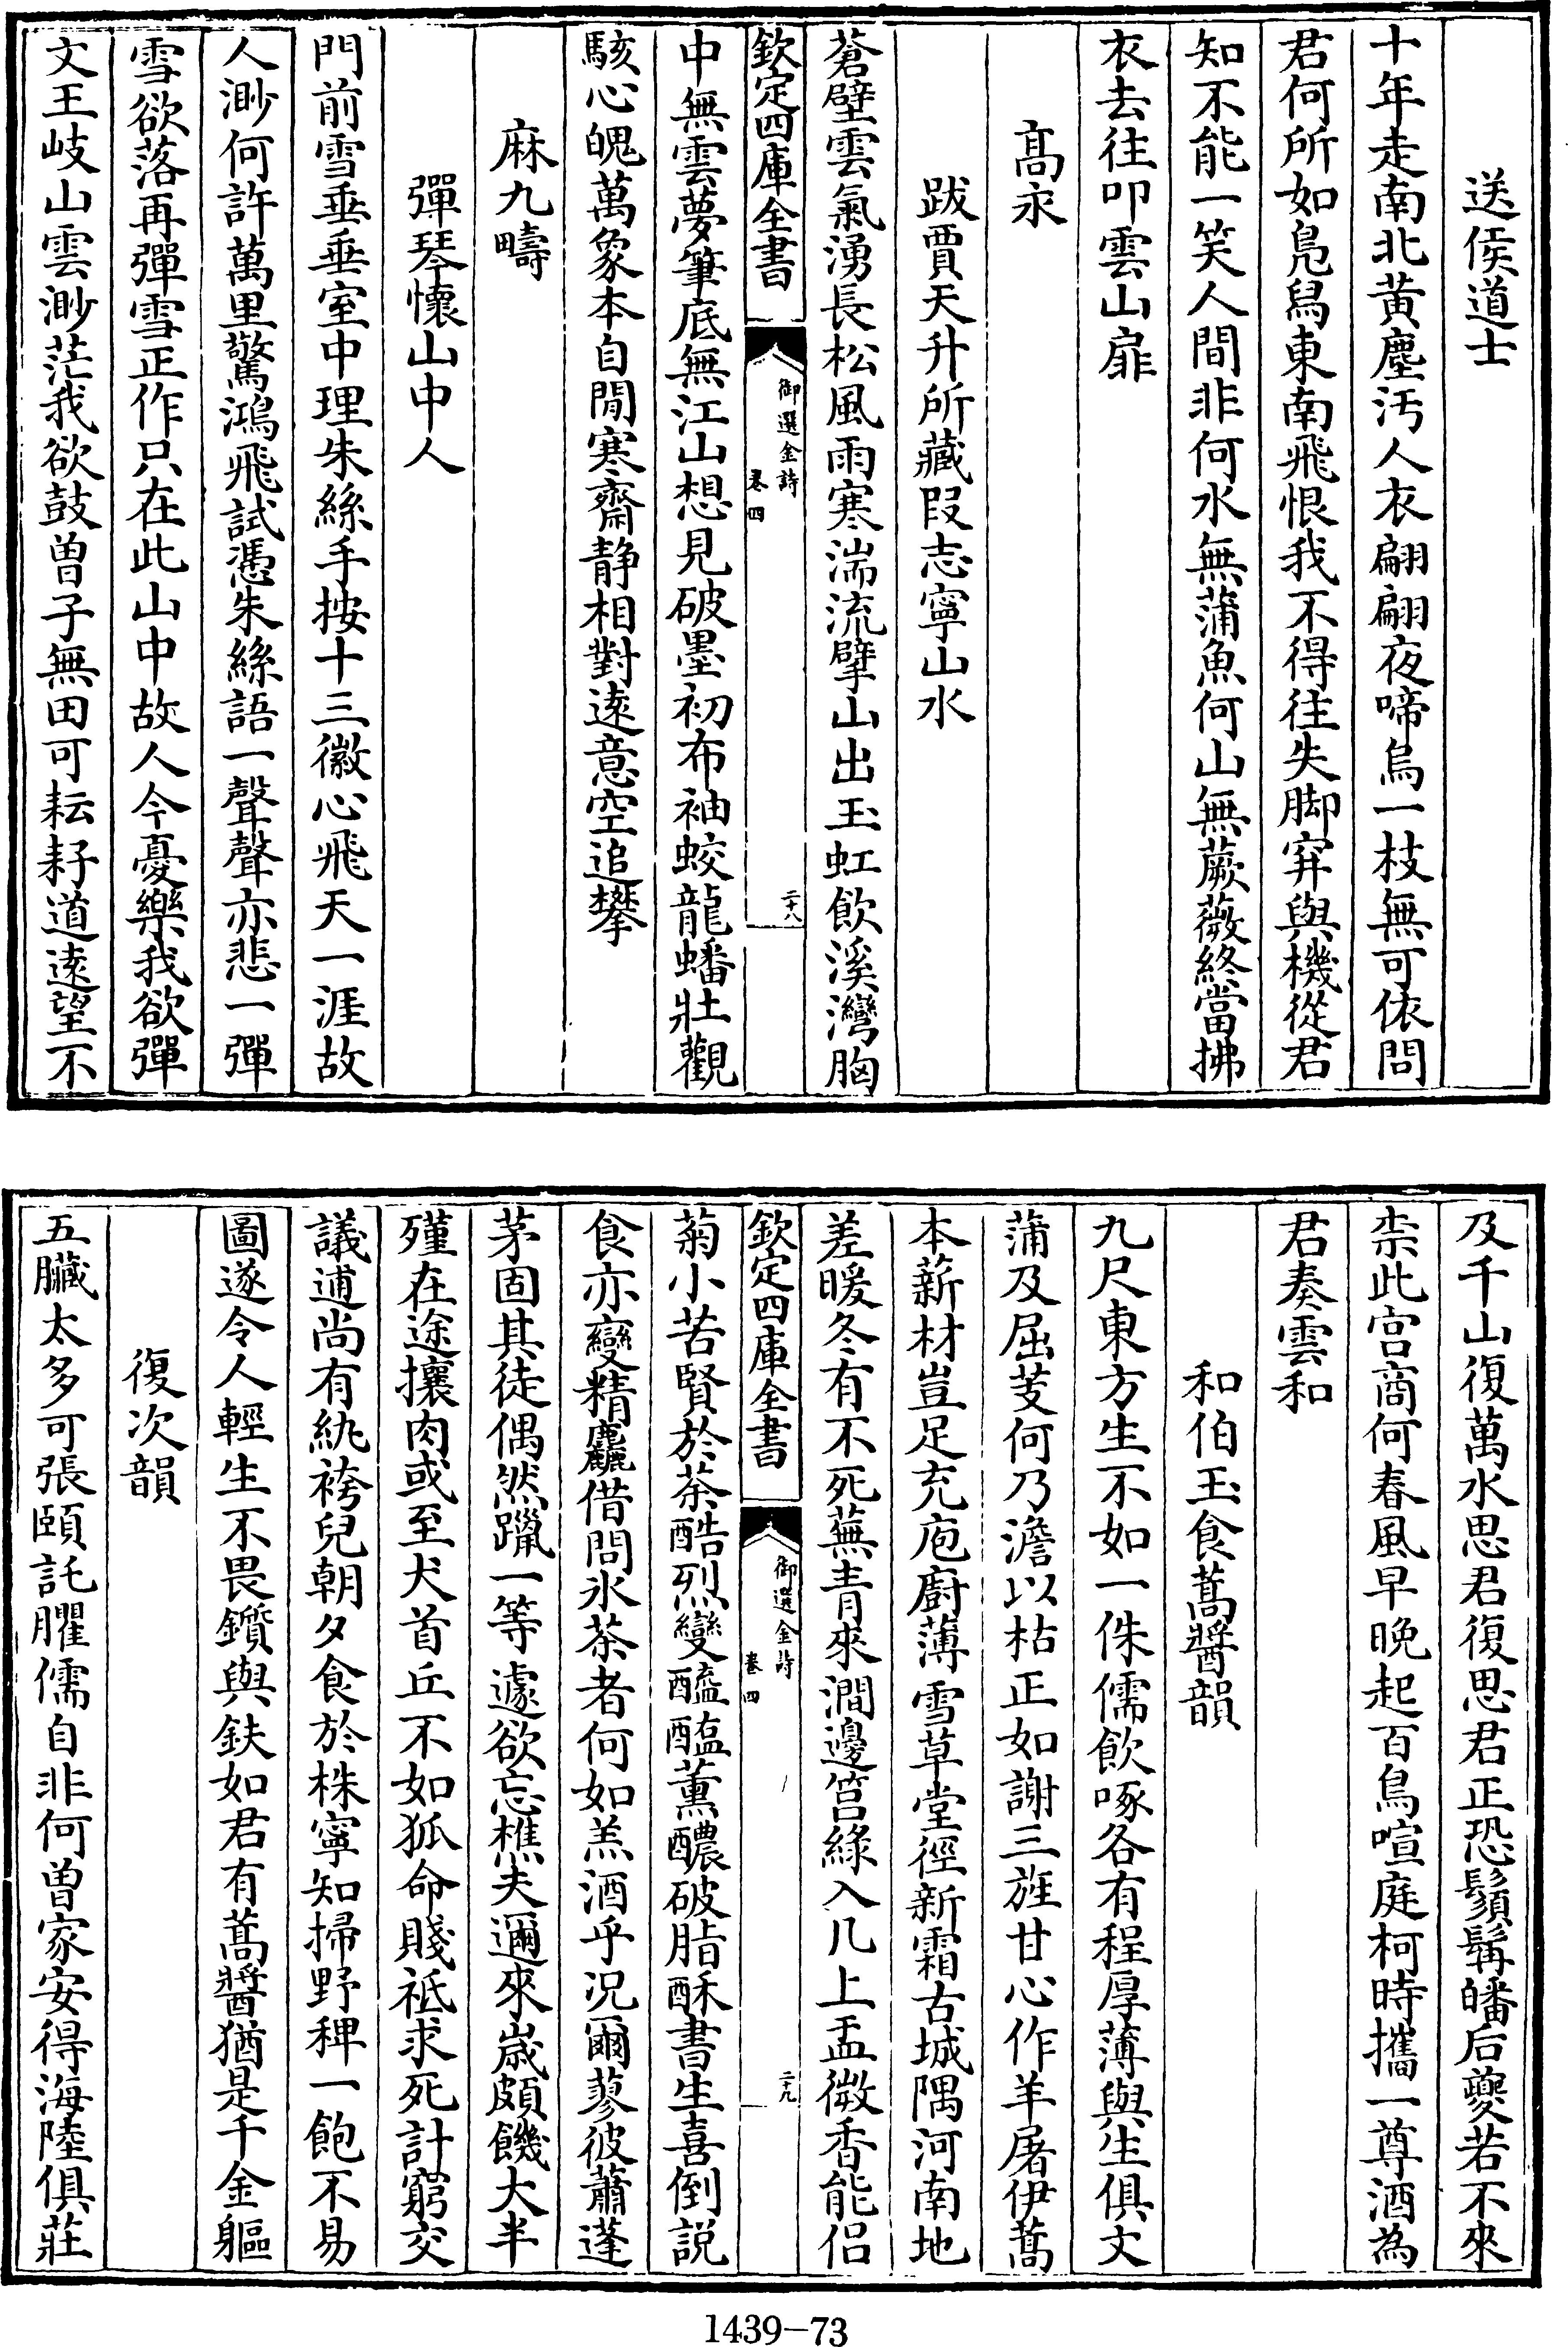 送侯道士
十年走南北黄塵汚人衣翩翩夜啼烏一枝無可依問
君何所如鳧舄東南飛恨我不得往失脚穽與機從君
知不能一笑人間非何水無蒲魚何山無蕨薇終當拂
衣去往叩雲山扉
髙永
跋賈天升所藏叚志寧山水
蒼壁雲氣湧長松風雨寒湍流擘山出玉虹飲溪灣胸
欽定四庫全書
御選金詩
卷四
二十八
中無雲夢筆底無江山想見破墨初布袖蛟龍蟠壯觀
駭心魄萬象本自閒寒齋静相對逺意空追攀
麻九疇
彈琴懷山中人
門前雪垂垂室中理朱絲手按十三徽心飛天一涯故
人渺何許萬里驚鴻飛試憑朱絲語一聲聲亦悲一彈
雪欲落再彈雪正作只在此山中故人今憂樂我欲彈
文王岐山雲渺茫我欲鼓曾子無田可耘耔道逺望不
及千山復萬水思君復思君正恐鬚髯皤后夔若不來
柰此宫商何春風早晩起百鳥喧庭柯時攜一尊酒為
君奏雲和
和伯玉食蒿醬韻
九尺東方生不如一侏儒飲啄各有程厚薄與生俱文
蒲及屈芰何乃澹以枯正如謝三旌甘心作羊屠伊蒿
本薪材豈足充庖廚薄雪草堂徑新霜古城隅河南地
差暖冬有不死蕪青來澗邊筥緑入几上盂微香能侣
欽定四庫全書
御選金詩
卷四
二十九
菊小苦賢於荼酷烈變醯醢薫醲破脂酥書生喜倒説
食亦變精麤借問氷茶者何如羔酒乎况爾蓼彼蕭蓬
茅固其徒偶然躐一等遽欲忘樵夫邇來嵗頗饑大半
殣在途攘肉或至犬首丘不如狐命賤祗求死計窮交
議逋尚有紈袴兒朝夕食於株寧知掃野稗一飽不易
圖遂令人輕生不畏鑕與鈇如君有蒿醬猶是千金軀
復次韻
五臟太多可張頤託臞儒自非何曾家安得海陸俱莊
1439-73